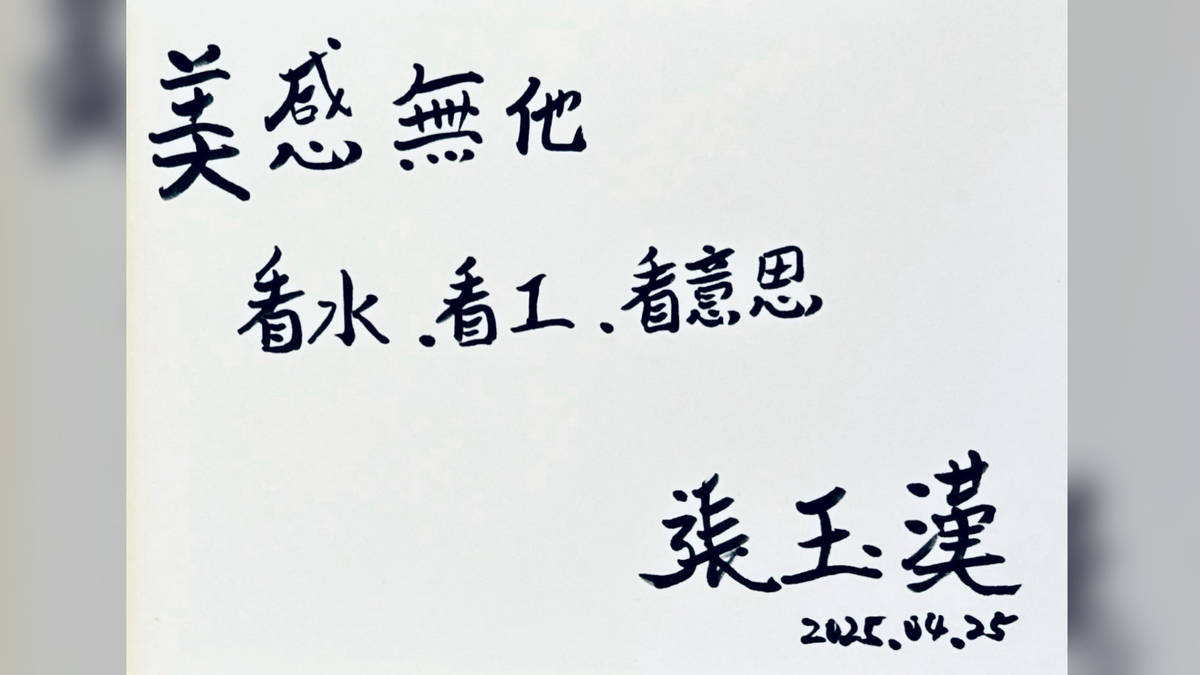 美感無他
看水.看工.看意思
張玉漢
2025.04.25